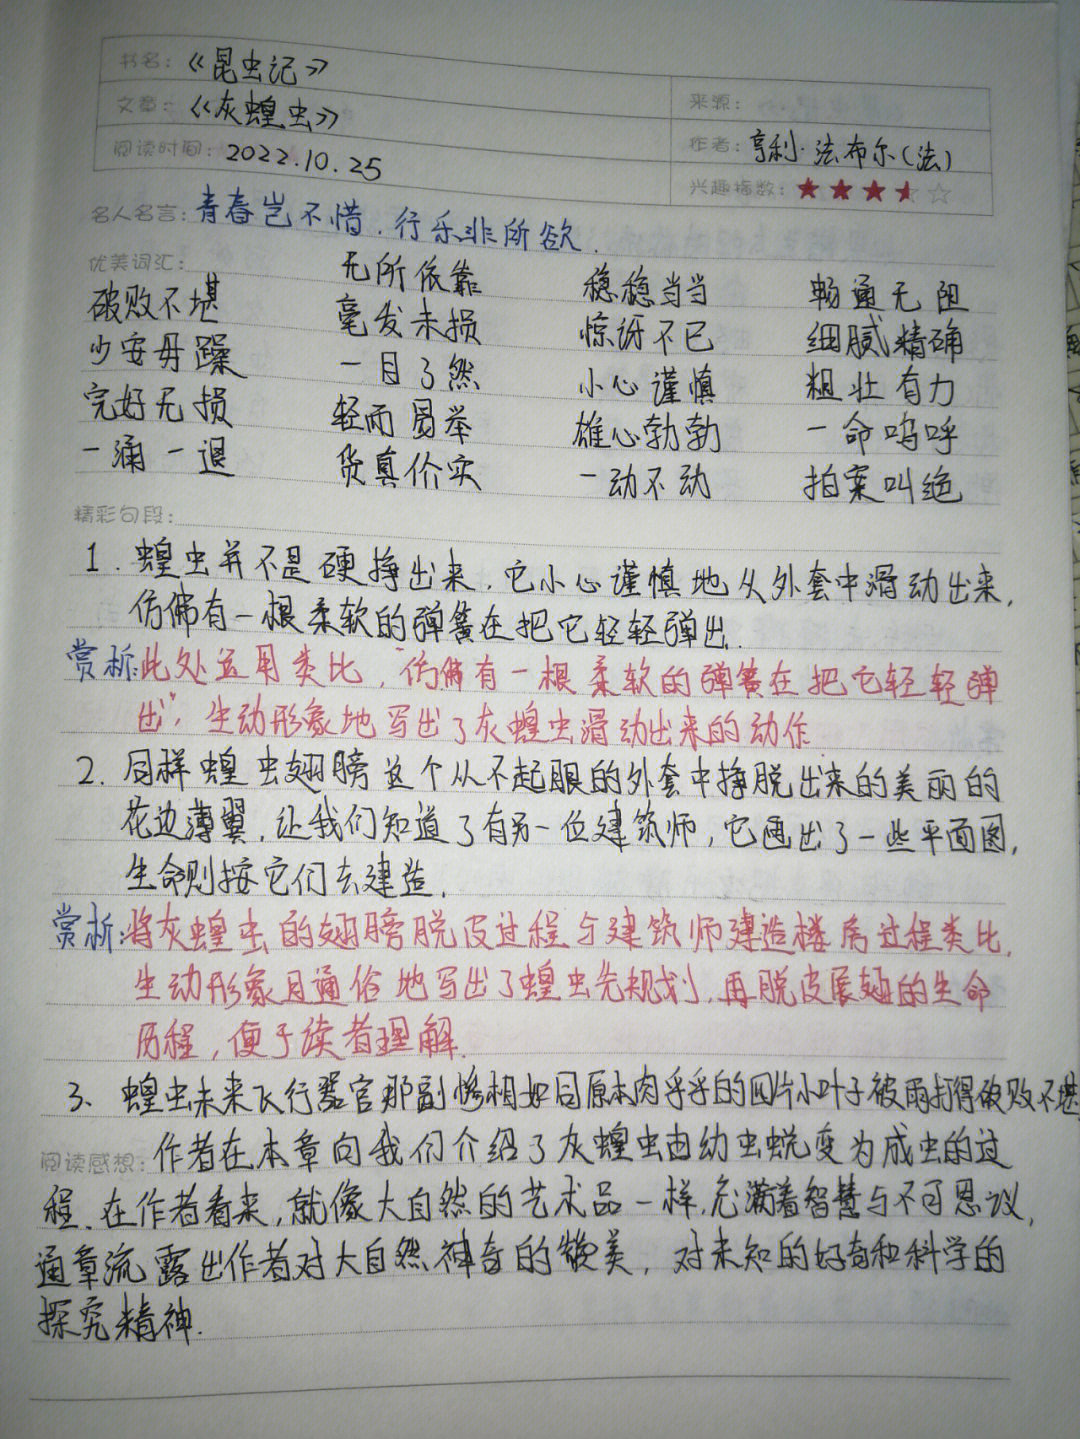 书名：《昆虫记》
文章：《灰蝗虫》
来源：
阅读时间：2022.10.25
作者：亨利·法布尔(法)
兴趣指数：★★★
名人名言：青春岂不惜，行乐非所欲．
优美词汇：
破败不堪 无所依靠 稳稳当当 畅通无阻
少安毋躁 毫发未损 惊讶不已 细腻精确
完好无损 一目了然 小心谨慎 粗壮有力
一涌一退 轻而易举 雄心勃勃 一命呜呼
货真价实 一动不动 拍案叫绝
精彩句段：
1．蝗虫并不是硬挣出来，它小心谨慎地从外套中滑动出来，
仿佛有一根柔软的弹簧在把它轻轻弹出．
赏析：此处运用类比，“仿佛有一根柔软的弹簧在把它轻轻弹
出”，生动形象地写出了灰蝗虫滑动出来的动作．
2．同样蝗虫翅膀这个从不起眼的外套中挣脱出来的美丽的
花边薄翼，让我们知道了有另一位建筑师，它画出了一些平面图，
生命则按它们去建造．
赏析：将灰蝗虫的翅膀脱皮过程与建筑师建造楼房过程类比，
生动形象且通俗地写出了蝗虫先规划，再脱皮展翅的生命
历程，便于读者理解．
3、蝗虫未来飞行器官那副惨相如同原本肉乎乎的四片小叶子被雨打得破败不堪
阅读感想：作者在本章向我们介绍了灰蝗虫由幼虫蜕变为成虫的过
程、在作者看来，就像大自然的艺术品一样，充满着智慧与不可思议，
通章流露出作者对大自然神奇的赞美，对未知的好奇和科学的
探究精神．